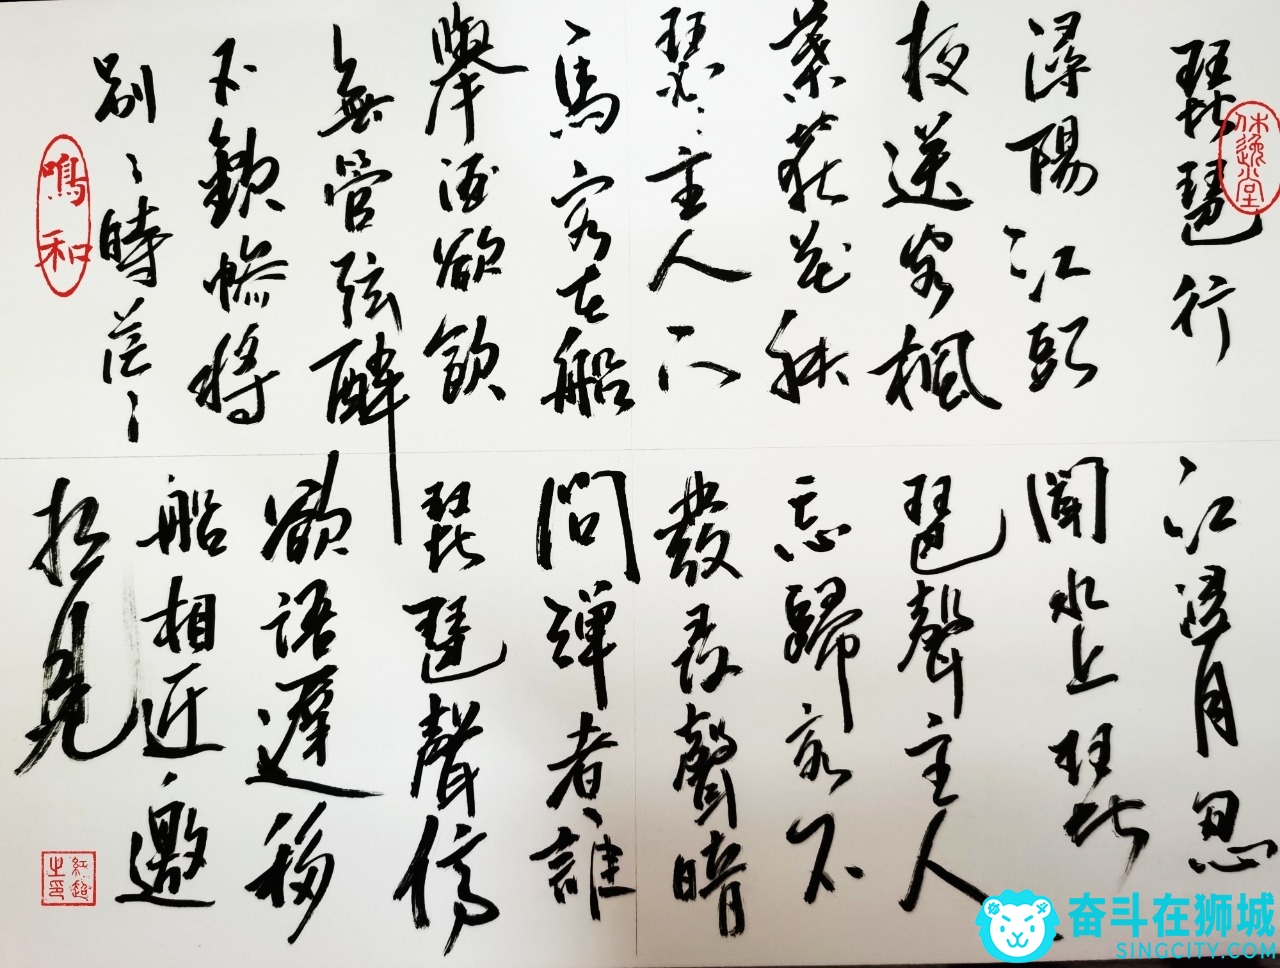 琵琶行
潯陽江頭
夜送客楓
葉荻花秋
瑟〻主人下
馬客在船
舉酒欲飲
無管弦醉
不歡慘將
別〻時茫〻
江浸月忽
聞水上琵
琶聲主人
忘歸客不
發尋聲暗
問彈者誰
琵琶聲停
欲語遲移
船相近邀
相見
休逸堂
鳴和
奋斗在狮城
SINGCITY.COM